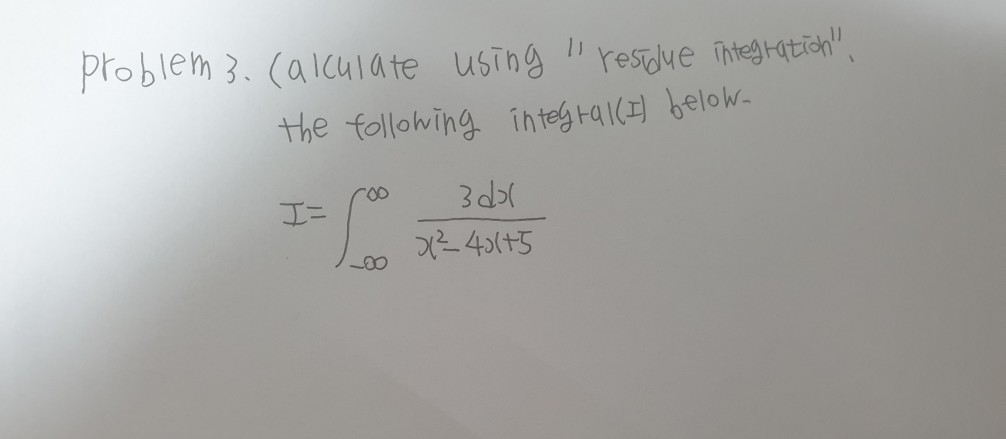 problem 3. Calculate using "residue integration".
the following integral(I) below-
I= ∫_{-∞}^{∞} 3dx / x²-4x+5